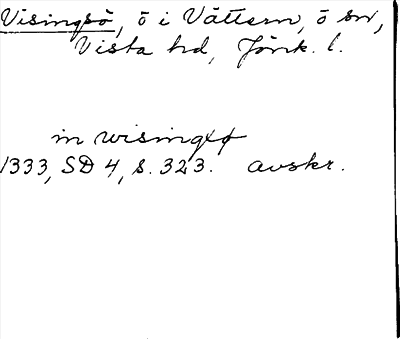 Visingsö, ö i Vättern, ö sn,
Vista hd, Jönk. l.
in wisingxø
1333, SD 4, s. 323. avskr.